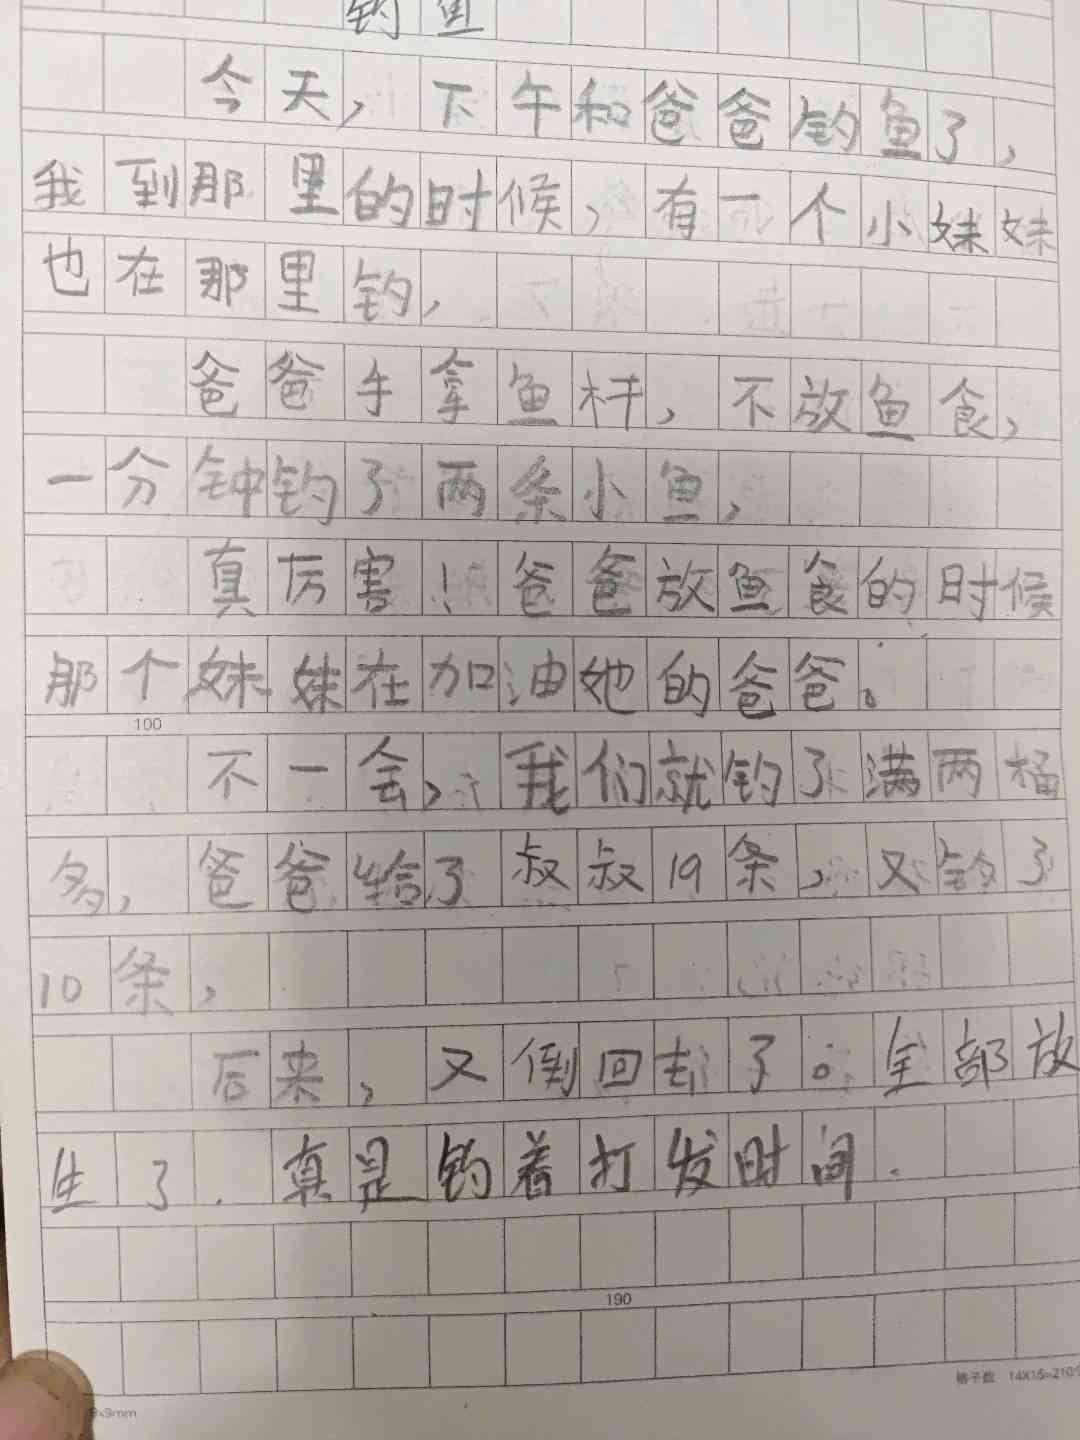 钓鱼
今天，下午和爸爸钓鱼了，
我到那里的时候，有一个小妹妹
也在那里钓，
爸爸手拿鱼杆，不放鱼食，
一分钟钓了两条小鱼，
真厉害！爸爸放鱼食的时候
那个妹妹在加油她的爸爸。
100
不一会，我们就钓了满两桶
多，爸爸给了叔叔19条，又钓了
10条，
后来，又倒回去了。全部放
生了.真是钓着打发时间.
190
格子数 14X15=210个
9x9mm